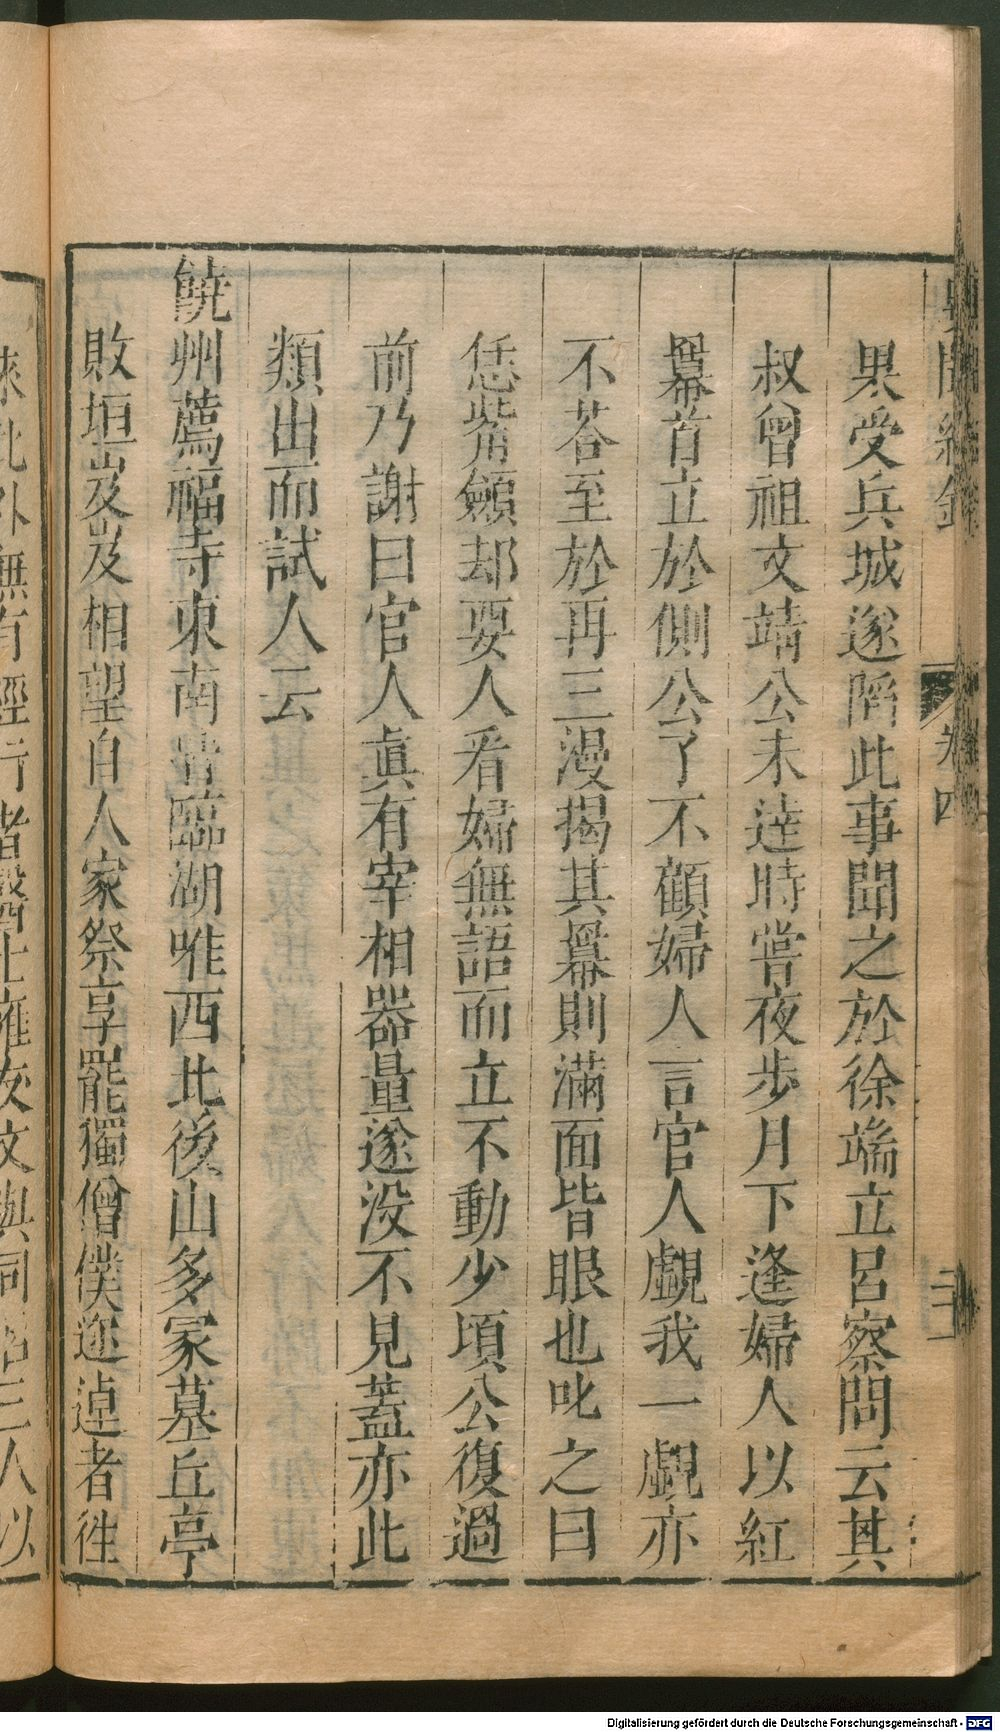 果受兵城遂陷此事聞之於徐端立呂察問云其
叔曾祖文靖公未達時嘗夜步月下逢婦人以紅
冪首立於側公了不顧婦人言官人覷我一覷亦
不荅至於再三漫揭其冪則滿面皆眼也叱之曰
恁觜䫌却要人看婦無語而立不動少頃公復過
前乃謝曰官人眞有宰相器量遂没不見蓋亦此
類出而試人云
饒州薦福寺東南皆臨湖唯西北後山多冢墓丘亭
敗垣岌岌相望自人家祭享罷獨僧僕迩逴者徃
卷四
二十一
無有經行者
三人以
Digitalisierung gefördert durch die Deutsche Forschungsgemeinschaft - DFG